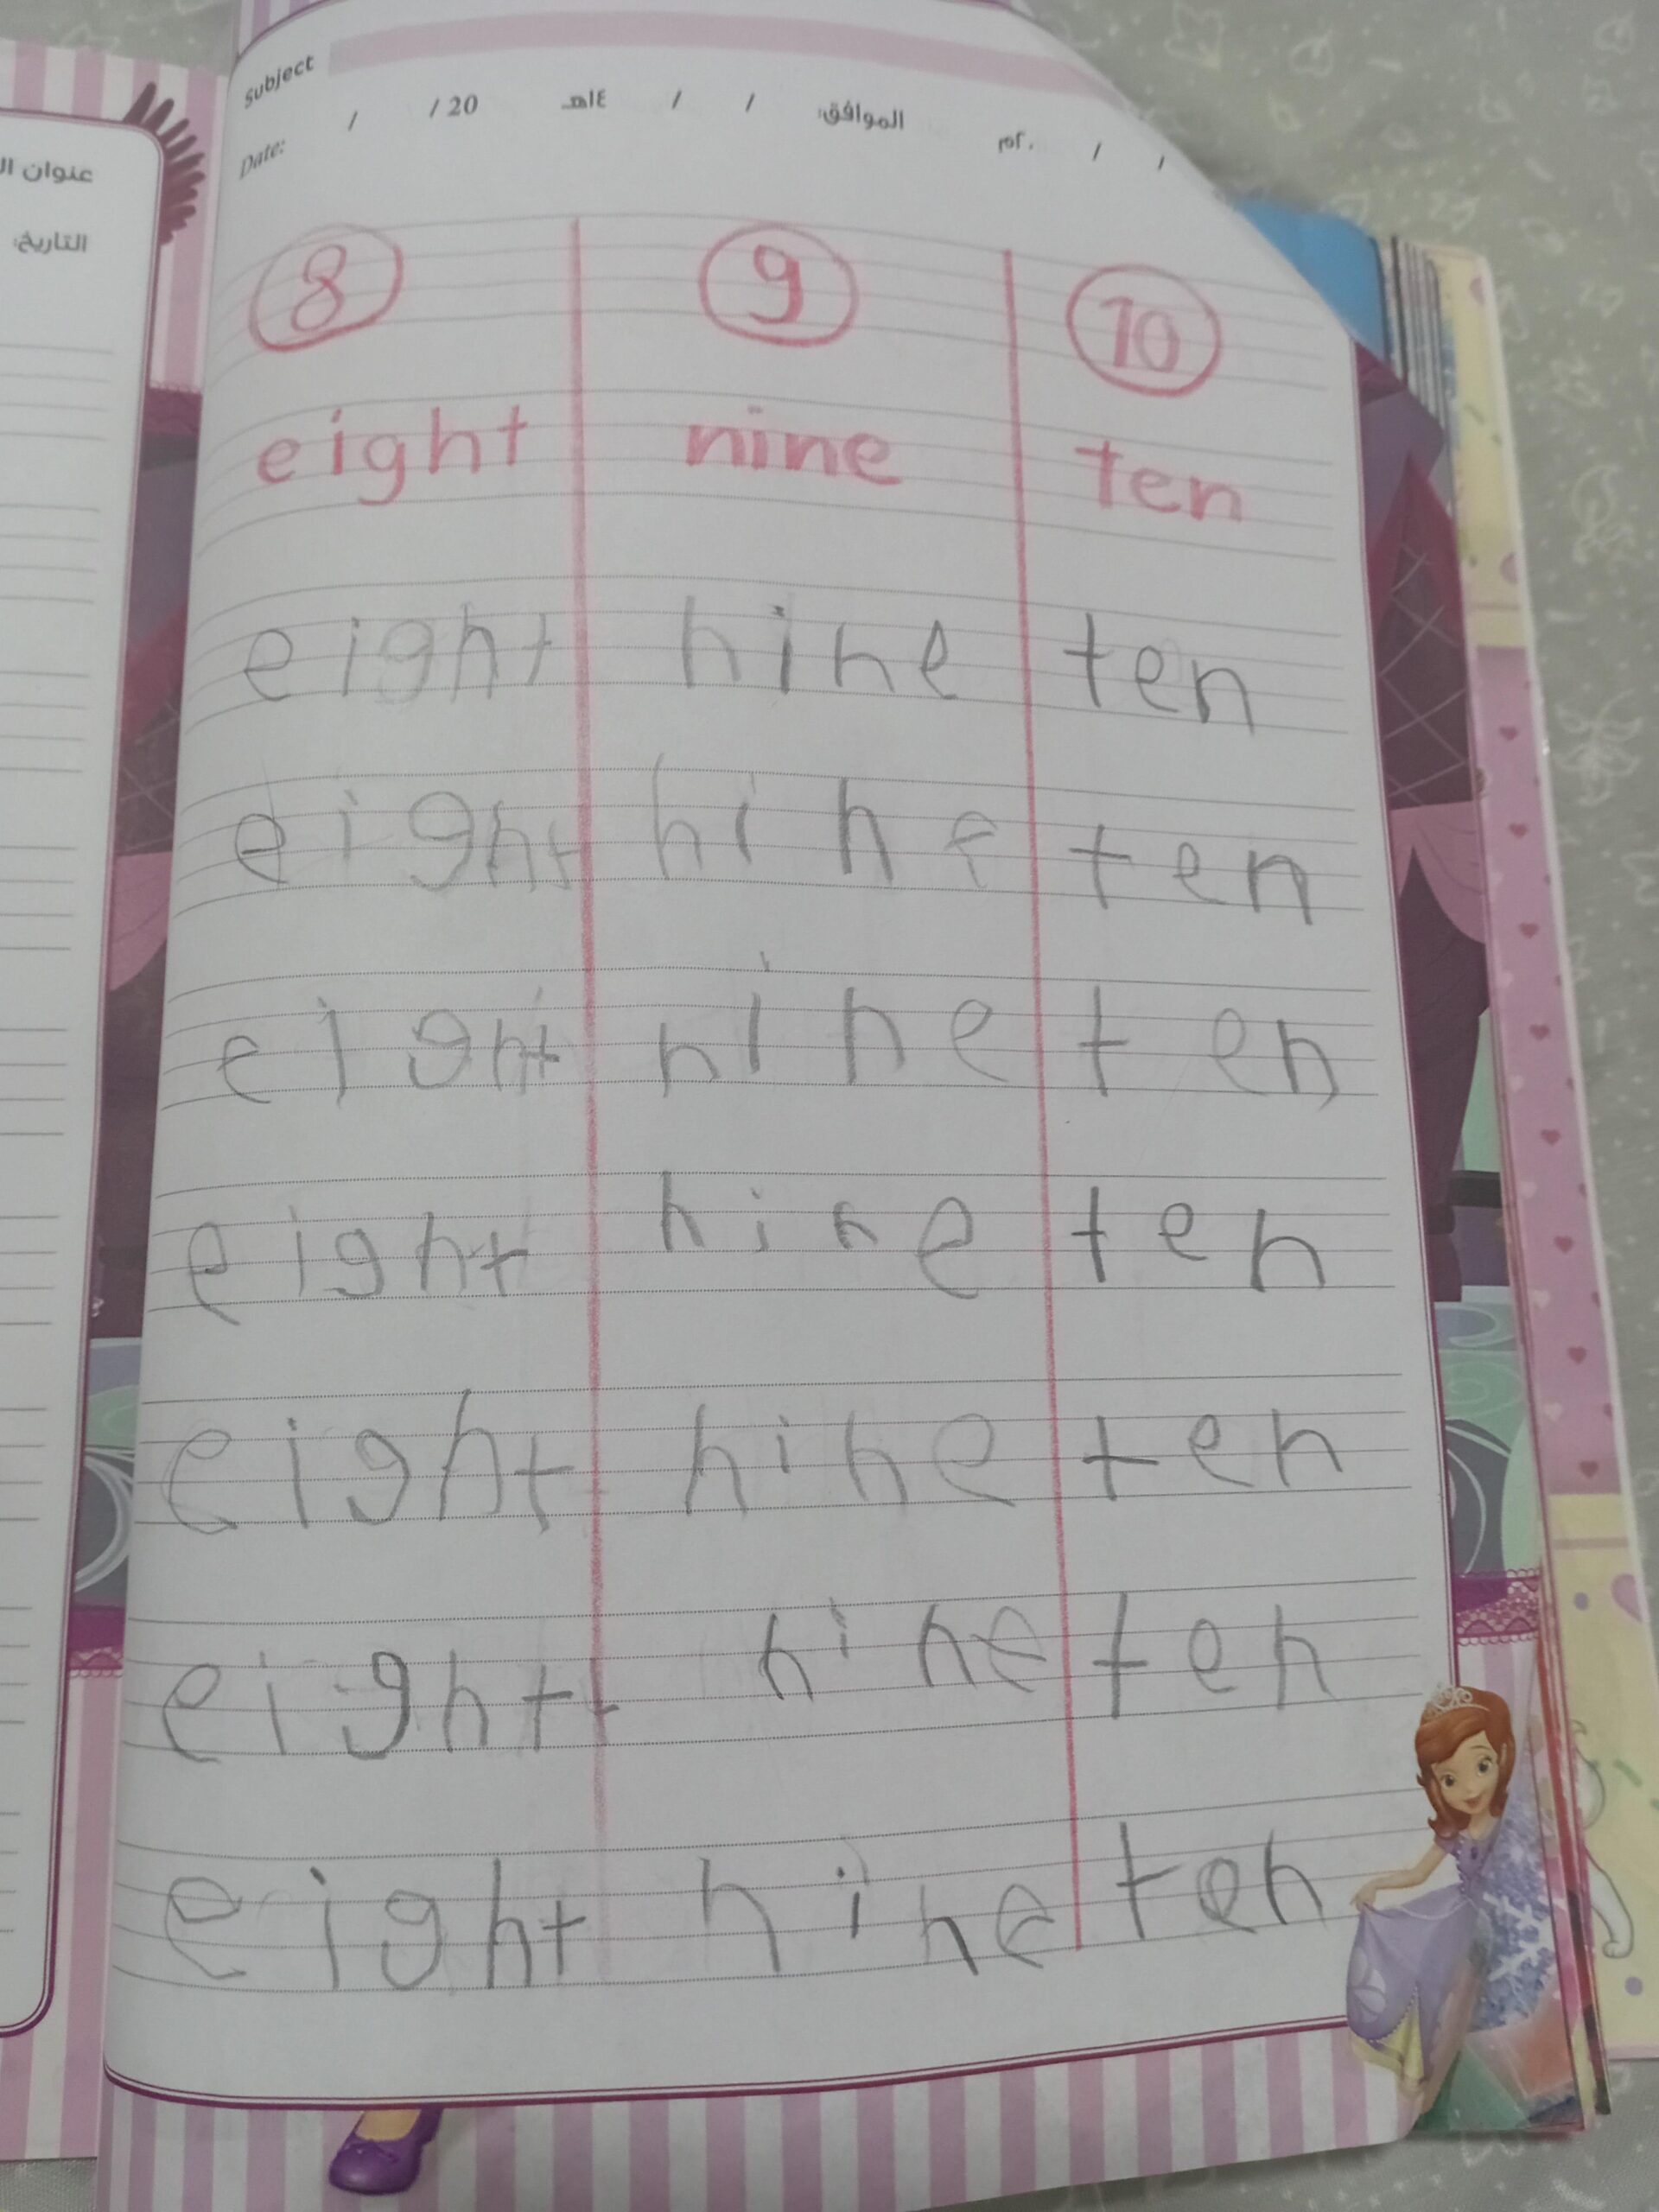 عنوان ال
التاريخ:
Subject
Date: / / 20 / / ١٤هـ الموافق: / / ٢٠م
8 9 10
eight nine ten
eight nine ten
eight nine ten
eight nine ten
eight nine ten
eight nine ten
eight nine ten
eight nine ten